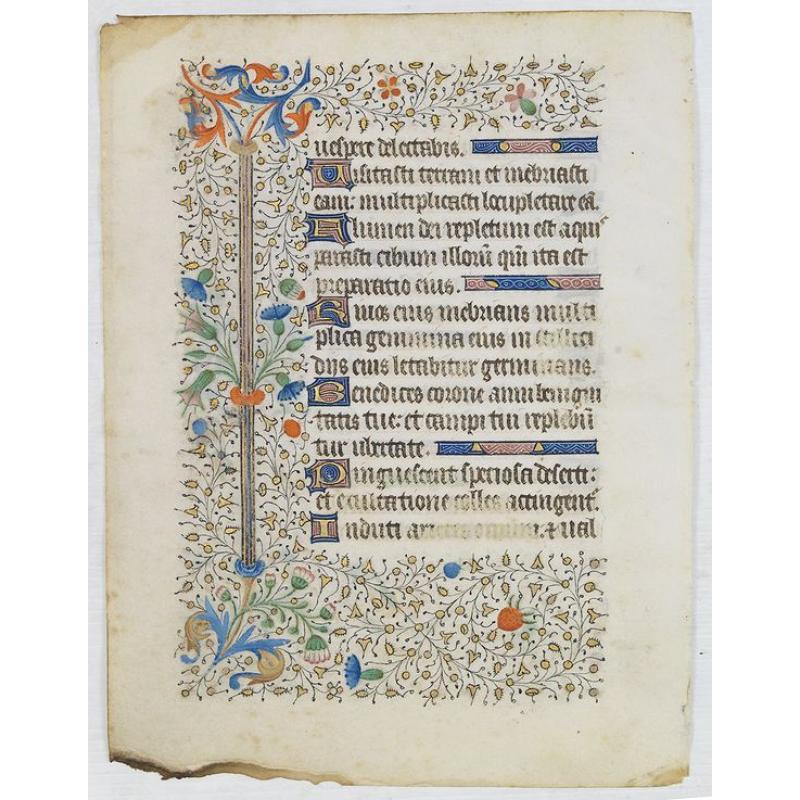 uespere delectabis.
Uisitasti terram et inebriasti
eam: multiplicasti locupletare eā.
Flumen dei repletum est aquis
parasti cibum illoꝝ qm̄ ita est
preparatio eius.
Riuos eius inebrians multi
plica genimina eius in stillici
dijs eius letabitur germinans.
Benedices corone anni benigni
tatis tue: et campi tui replebū
tur ubertate.
Pinguescent speciosa deserti:
et exultatione colles accingent᷑.
Induti arietes ouium. ⁊ ual